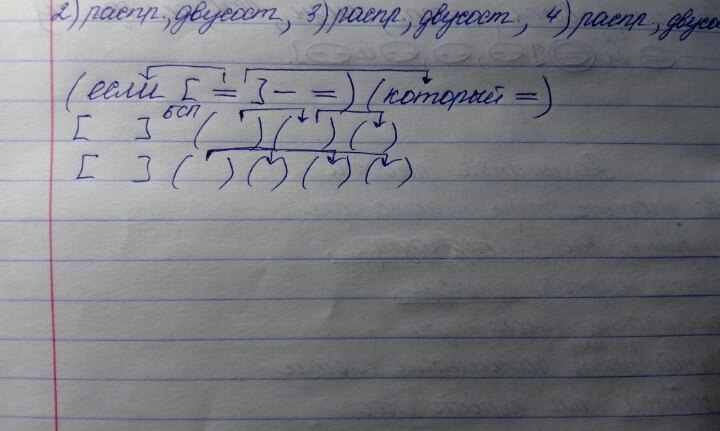 2) распр., двусост., 3) распр., двусост., 4) распр., двусо
(если [ = ] – = ) (который = )
[ ] БСП ( ) ( ) ( ) ( )
[ ] ( ) ( ) ( ) ( )